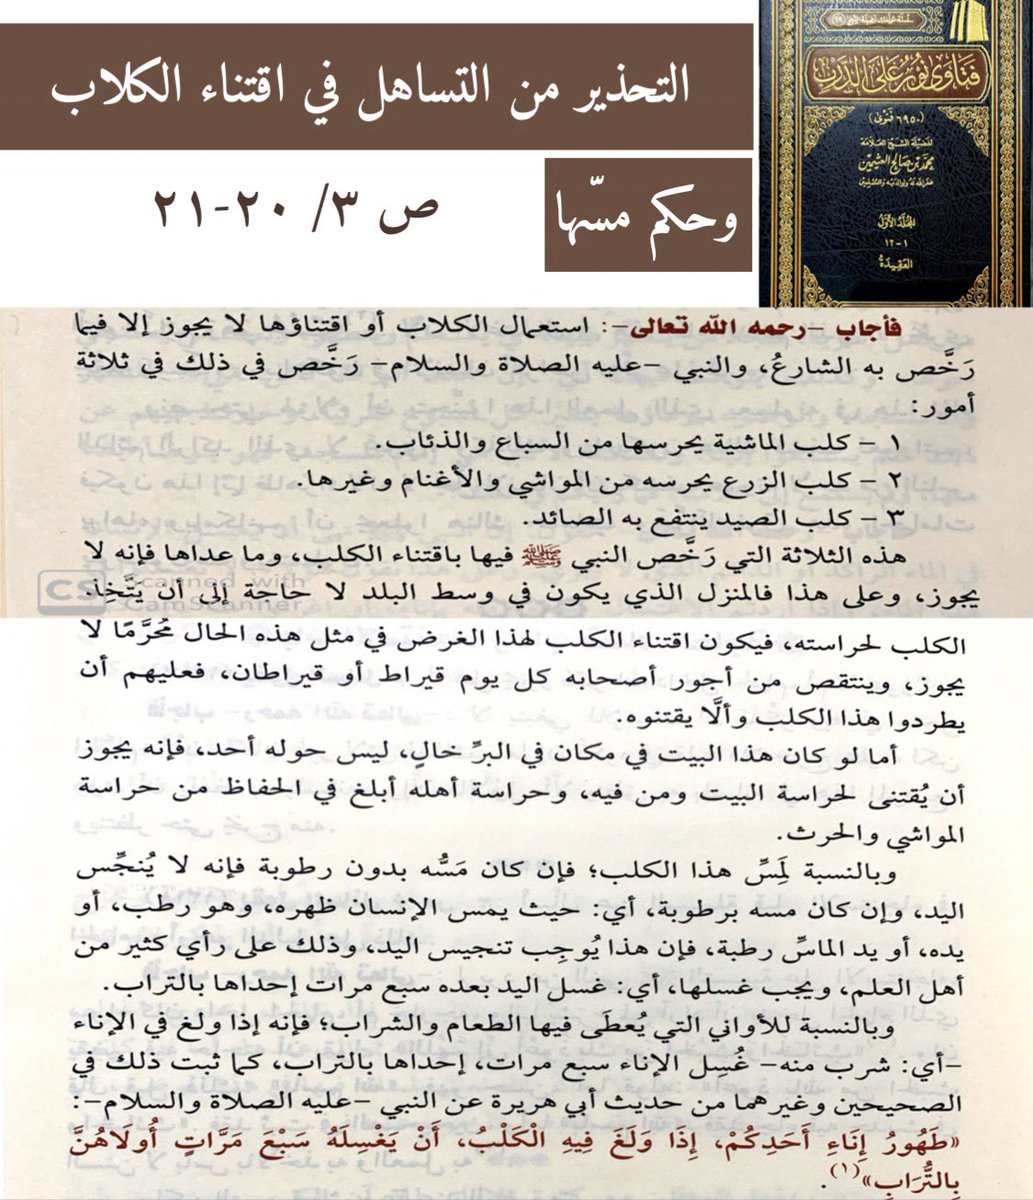 التحذير من التساهل في اقتناء الكلاب
وحكم مسّها
ص ٣/ ٢٠-٢١
فتاوى نور على الدرب
(٦٩٥٠ فتوى)
لفضيلة الشيخ العلامة
محمد بن صالح العثيمين
غفر الله له ولوالديه وللمسلمين
المجلد الأول
١-١٢
العقيدة
فأجاب -رحمه الله تعالى-: استعمال الكلاب أو اقتناؤها لا يجوز إلا فيما
رَخَّص به الشارعُ، والنبي -عليه الصلاة والسلام- رَخَّص في ذلك في ثلاثة
أمور:
١ - كلب الماشية يحرسها من السباع والذئاب.
٢ - كلب الزرع يحرسه من المواشي والأغنام وغيرها.
٣ - كلب الصيد ينتفع به الصائد.
هذه الثلاثة التي رَخَّص النبي ﷺ فيها باقتناء الكلب، وما عداها فإنه لا
يجوز، وعلى هذا فالمنزل الذي يكون في وسط البلد لا حاجة إلى أن يَتَّخِذ
CS Scanned with
CamScanner
الكلب لحراسته، فيكون اقتناء الكلب لهذا الغرض في مثل هذه الحال مُحَرَّمًا لا
يجوز، وينتقص من أجور أصحابه كل يوم قيراط أو قيراطان، فعليهم أن
يطردوا هذا الكلب وألَّا يقتنوه.
أما لو كان هذا البيت في مكان في البرِّ خالٍ، ليس حوله أحد، فإنه يجوز
أن يُقتنى لحراسة البيت ومن فيه، وحراسة أهله أبلغ في الحفاظ من حراسة
المواشي والحرث.
وبالنسبة لِمَسِّ هذا الكلب؛ فإن كان مَسُّه بدون رطوبة فإنه لا يُنجِّس
اليد، وإن كان مسه برطوبة، أي: حيث يمس الإنسان ظهره، وهو رطب، أو
يده، أو يد الماسِّ رطبة، فإن هذا يُوجِب تنجيس اليد، وذلك على رأي كثير من
أهل العلم، ويجب غسلها، أي: غسل اليد بعده سبع مرات إحداها بالتراب.
وبالنسبة للأواني التي يُعطَى فيها الطعام والشراب؛ فإنه إذا ولغ في الإناء
-أي: شرب منه- غُسِل الإناء سبع مرات، إحداها بالتراب، كما ثبت ذلك في
الصحيحين وغيرهما من حديث أبي هريرة عن النبي -عليه الصلاة والسلام-:
«طَهُورُ إِنَاءِ أَحَدِكُمْ، إِذَا وَلَغَ فِيهِ الْكَلْبُ، أَنْ يَغْسِلَهُ سَبْعَ مَرَّاتٍ أُولَاهُنَّ
بِالتُّرَابِ»(١).